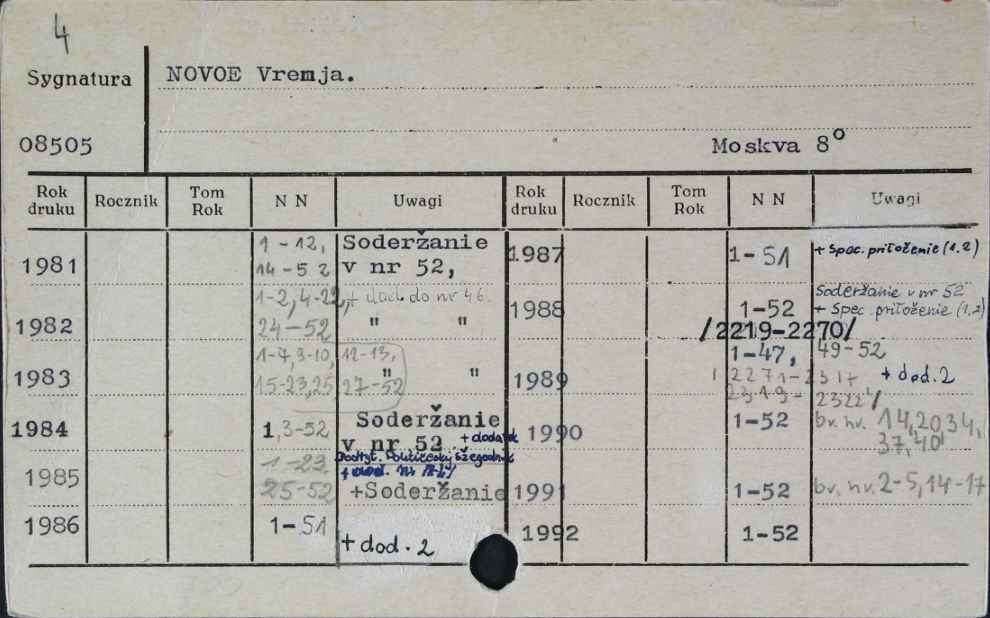 4
Sygnatura NOVOE Vremja.
08505 Moskva 8°
Rok druku Rocznik Tom Rok N N Uwagi Rok druku Rocznik Tom Rok N N Uwagi
1981 1-12, Soderžanie
14-52 v nr 52,
1982 1-2, 4-22, + dod. do nr 46.
24-52 " "
1983 1-7, 3-10, 12-13,
15-23, 25, 27-52 " "
1984 1, 3-52 Soderžanie
v nr 52 + dodatek
1985 1-23
+ dod.
25-52 +Soderžanie
1986 1-51
+ dod. 2
1987 1-51 + Spec. priłoženie (1.2)
1988 1-52 Soderžanie v nr 52
+ Spec. priłoženie (1.2)
/2219-2270/
1989 1-47, 49-52
2271-2317 + dod. 2
2319-2322/
1990 1-52 br. nr. 14, 20, 34,
37, 40
1991 1-52 br. nr. 2-5, 14-17
1992 1-52